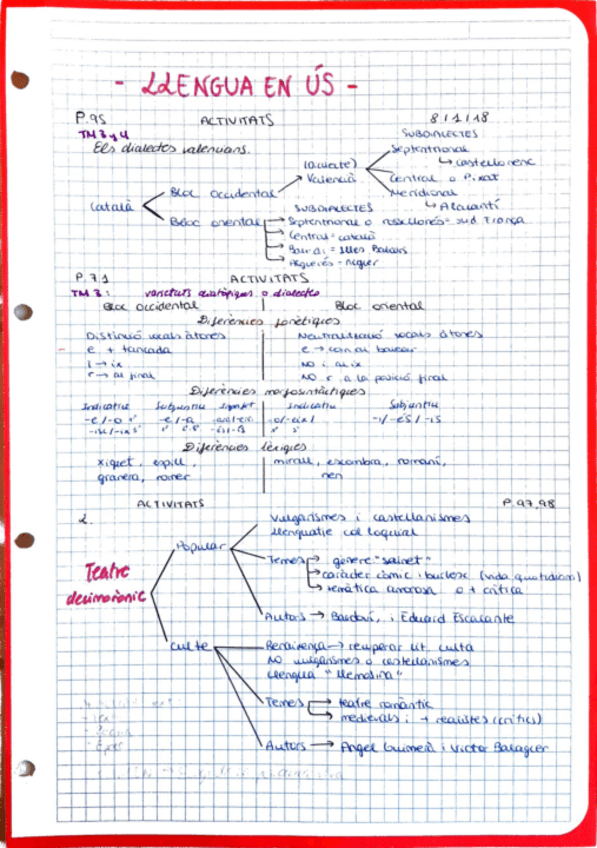 - LLENGUA EN ÚS -
P.95 ACTIVITATS 8/1/18
TM 3 y 4 SUBDIALECTES
Els dialectes valencians. Septentrional
↳ castellonenc
Valencià Central o Pixat
Bloc occidental Meridional
Català SUBDIALECTES ↳ Alacantí
Bloc oriental Septentrional o rossellonés = sud França
Central = català
Balear = Illes Balears
Alguerés = Alguer
P.71 ACTIVITATS
TM 3: varietats diatòpiques o dialectes
Bloc occidental Bloc oriental
Diferències fonètiques
Distinció vocals àtones Neutralització vocals àtones
e + tancada e → com al balear
i → ix NO i al ix
r → al final NO r a la posició final
Diferències morfosintàctiques
Indicatiu Subjuntiu Indicatiu Subjuntiu
-e/-o -e/-a -i/-és/-is
Diferències lèxiques
xiquet, espill, mirall, escombra, romaní,
granera, romer nen
ACTIVITATS P.97,98
2. Vulgarismes i castellanismes
Llenguatje col·loquial
Popular
Temes → gènere "sainet"
Teatre → caràcter còmic i burlesc (vida quotidiana)
decimonònic → temàtica amorosa o + crítica
Autors → i Eduard Escalante
Culte Renaixença → recuperar lit. culta
NO vulgarismes o castellanismes
Llengua "llemosina"
Temes → teatre romàntic
→ medievals i + realistes (crítics)
Autors → Àngel Guimerà i Victor Balaguer